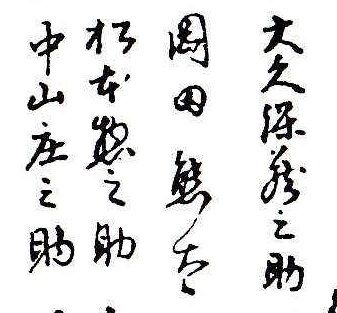 大久保之助
岡田熊太
松本惣之助
中山庄之助